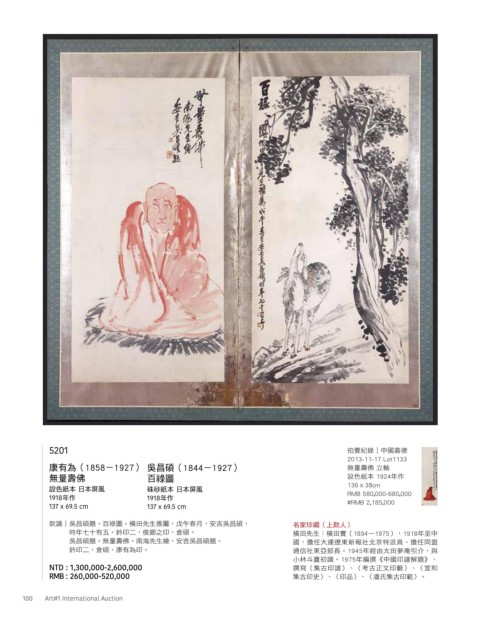 無量壽佛
南海先生繪
安吉吳昌碩題
百祿圖
5201
康有為（1858－1927） 吳昌碩（1844－1927）
無量壽佛 百祿圖
設色紙本 日本屏風 硃砂紙本 日本屏風
1918年作 1918年作
137 x 69.5 cm 137 x 69.5 cm
款識｜吳昌碩題。百祿圖。橫田先生雅屬，戊午春月，安吉吳昌碩，
時年七十有五。鈐印二，俊卿之印，倉碩。
吳昌碩題。無量壽佛。南海先生繪，安吉吳昌碩題。
鈐印二，倉碩，康有為印。
NTD : 1,300,000-2,600,000
RMB : 260,000-520,000
拍賣紀錄｜中國嘉德
2013-11-17 Lot1133
無量壽佛 立軸
設色紙本 1924年作
136 x 38cm
RMB 580,000-680,000
#RMB 2,185,000
名家珍藏（上款人）
橫田先生：橫田實（1894－1975），1918年至中
國，擔任大連遼東新報社北京特派員，擔任同盟
通信社東亞部長。1945年經由太田夢庵引介，與
小林斗盦初識。1975年編撰《中國印譜解題》、
撰寫（集古印譜）、（考古正文印藪）、（宣和
集古印史）、（印品）、（潘氏集古印範）。
100 Art#1 International Auction